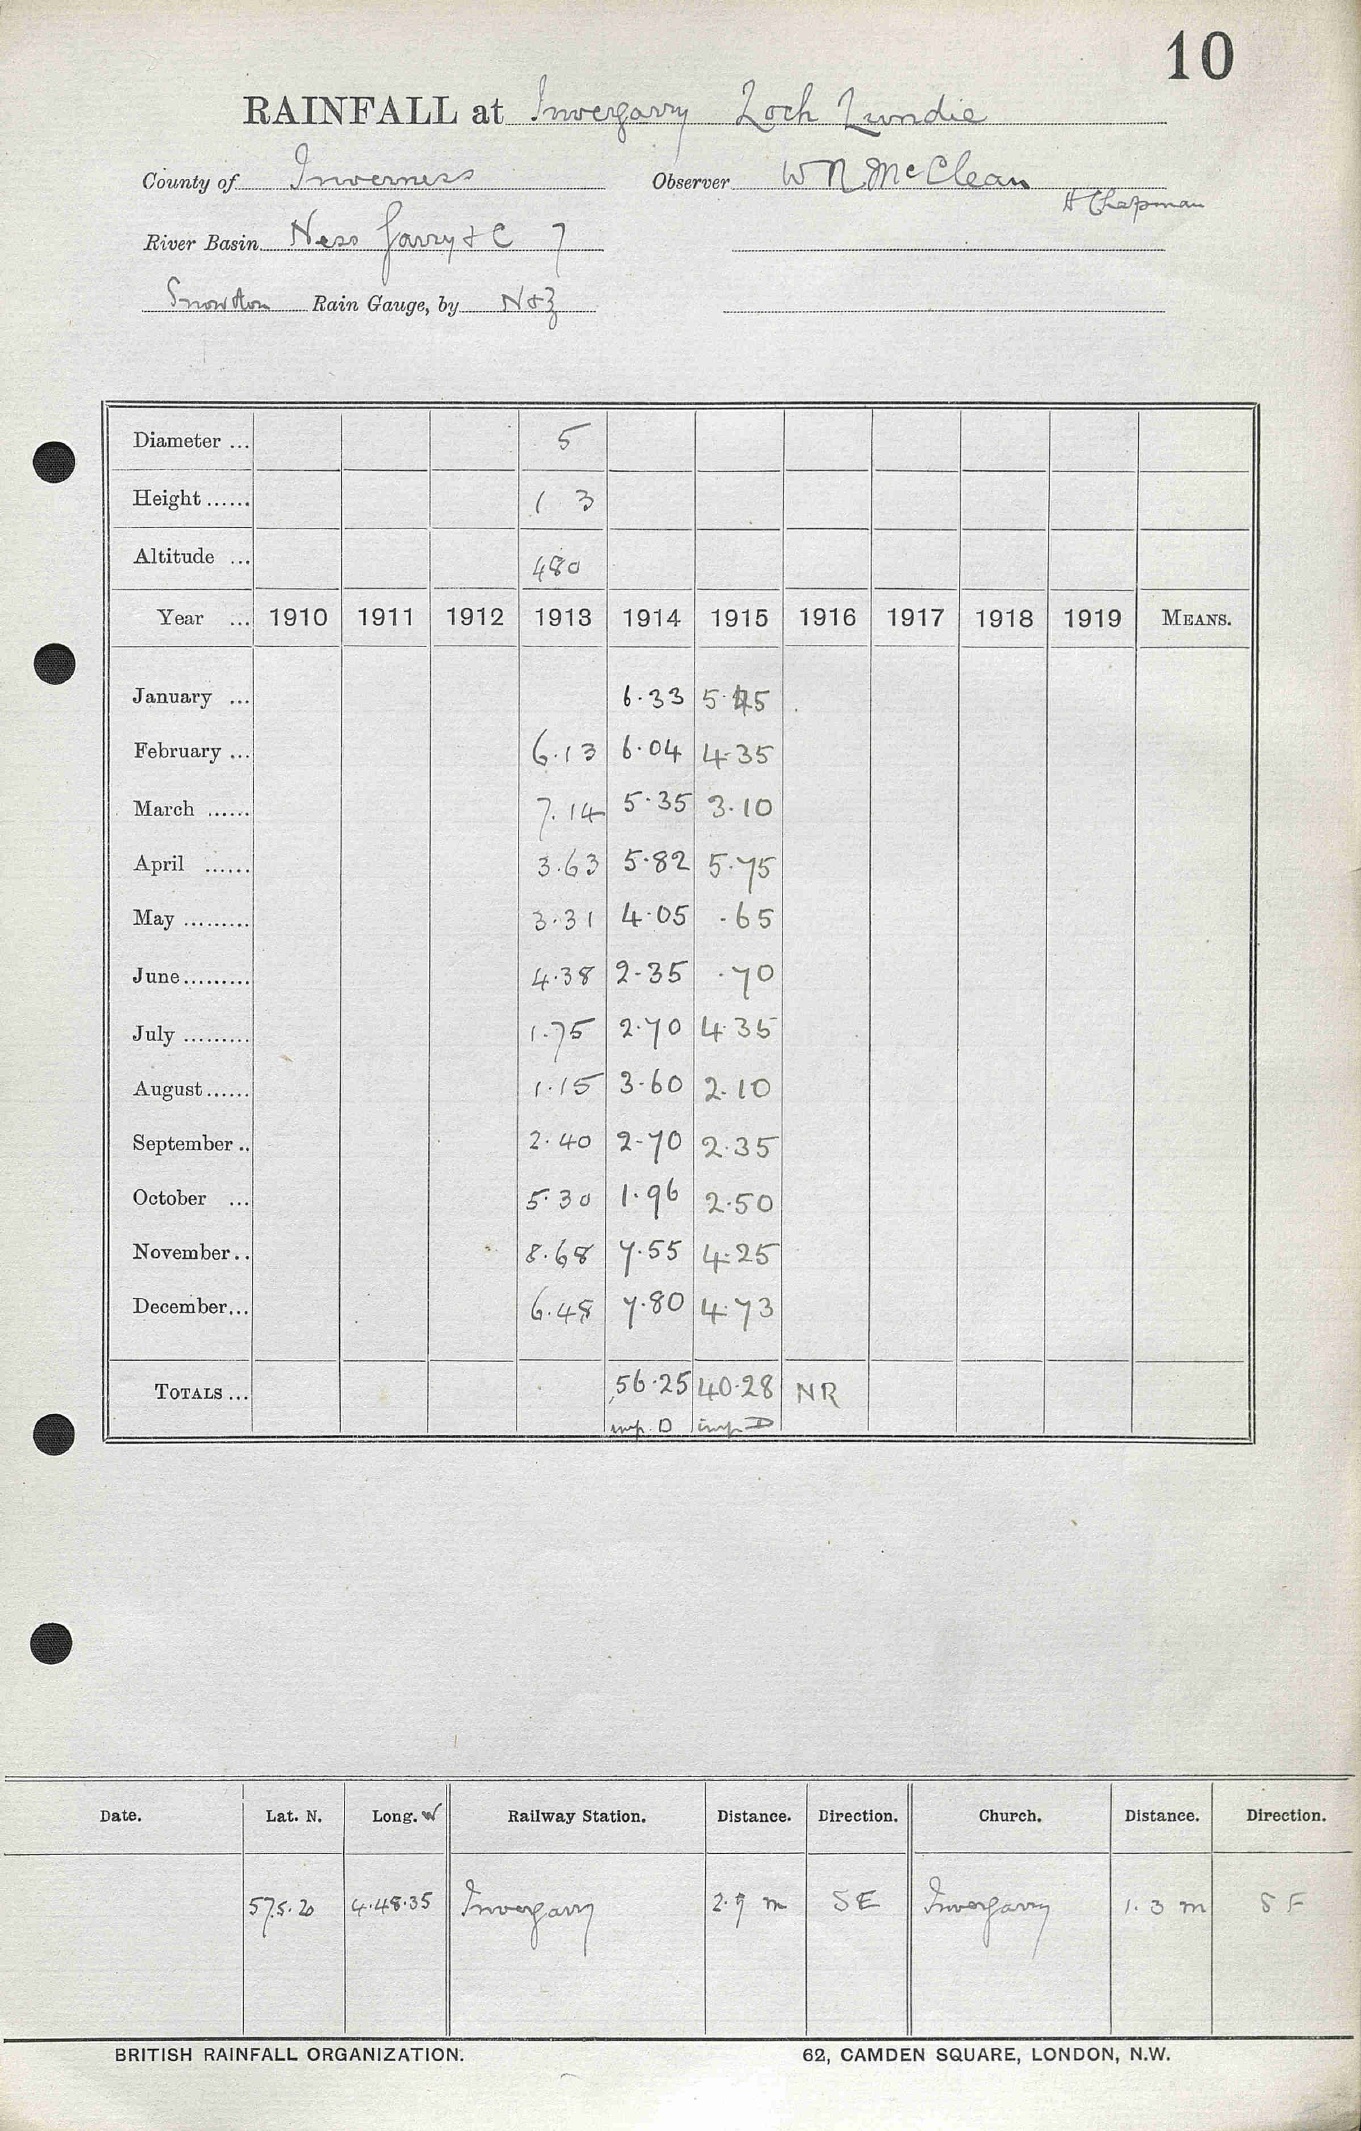 10
RAINFALL at Invergarry Loch Lundie
County of Inverness Observer W N McClean
H Chapman
River Basin Ness Garry & C 7
Snowdon Rain Gauge, by N & Z
Diameter ... 5
Height ...... 1 3
Altitude ... 480
Year ... 1910 1911 1912 1913 1914 1915 1916 1917 1918 1919 MEANS.
January ... 6.33 5.45
February ... 6.13 6.04 4.35
March ...... 7.14 5.35 3.10
April ...... 3.63 5.82 5.75
May ......... 3.31 4.05 .65
June ......... 4.38 2.35 .70
July ......... 1.75 2.70 4.35
August ...... 1.15 3.60 2.10
September .. 2.40 2.70 2.35
October ... 5.30 1.96 2.50
November .. 8.68 7.55 4.25
December ... 6.48 7.80 4.73
TOTALS ... 56.25 40.28 NR
imp. D imp. D
Date. Lat. N. Long. W Railway Station. Distance. Direction. Church. Distance. Direction.
57.5.20 4.48.35 Invergarry 2.9 m SE Invergarry 1.3 m SE
BRITISH RAINFALL ORGANIZATION. 62, CAMDEN SQUARE, LONDON, N.W.